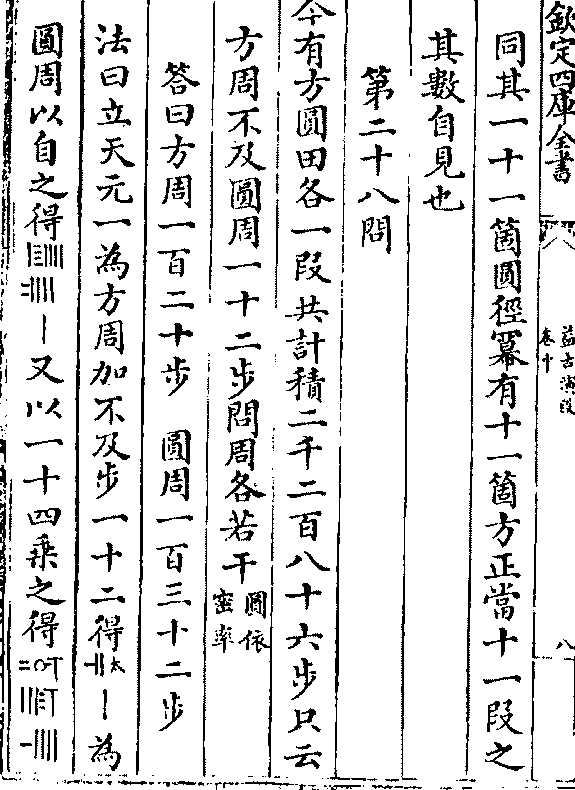 欽定四庫全書
益古演段
卷中
八
同其一十一箇圓徑冪有十一箇方正當十一段之
其數自見也
第二十八問
今有方圓田各一段共計積二千二百八十六步只云
方周不及圓周一十二步問周各若干圓依密率
答曰方周一百二十步　圓周一百三十二步
法曰立天元一為方周加不及步一十二得𝍩𝍡太𝍠為
圓周以自之得𝍠𝍬𝍣𝍪𝍣𝍠又以一十四乘之得𝍪〇𝍩𝍥𝍢𝍫𝍥𝍩𝍣